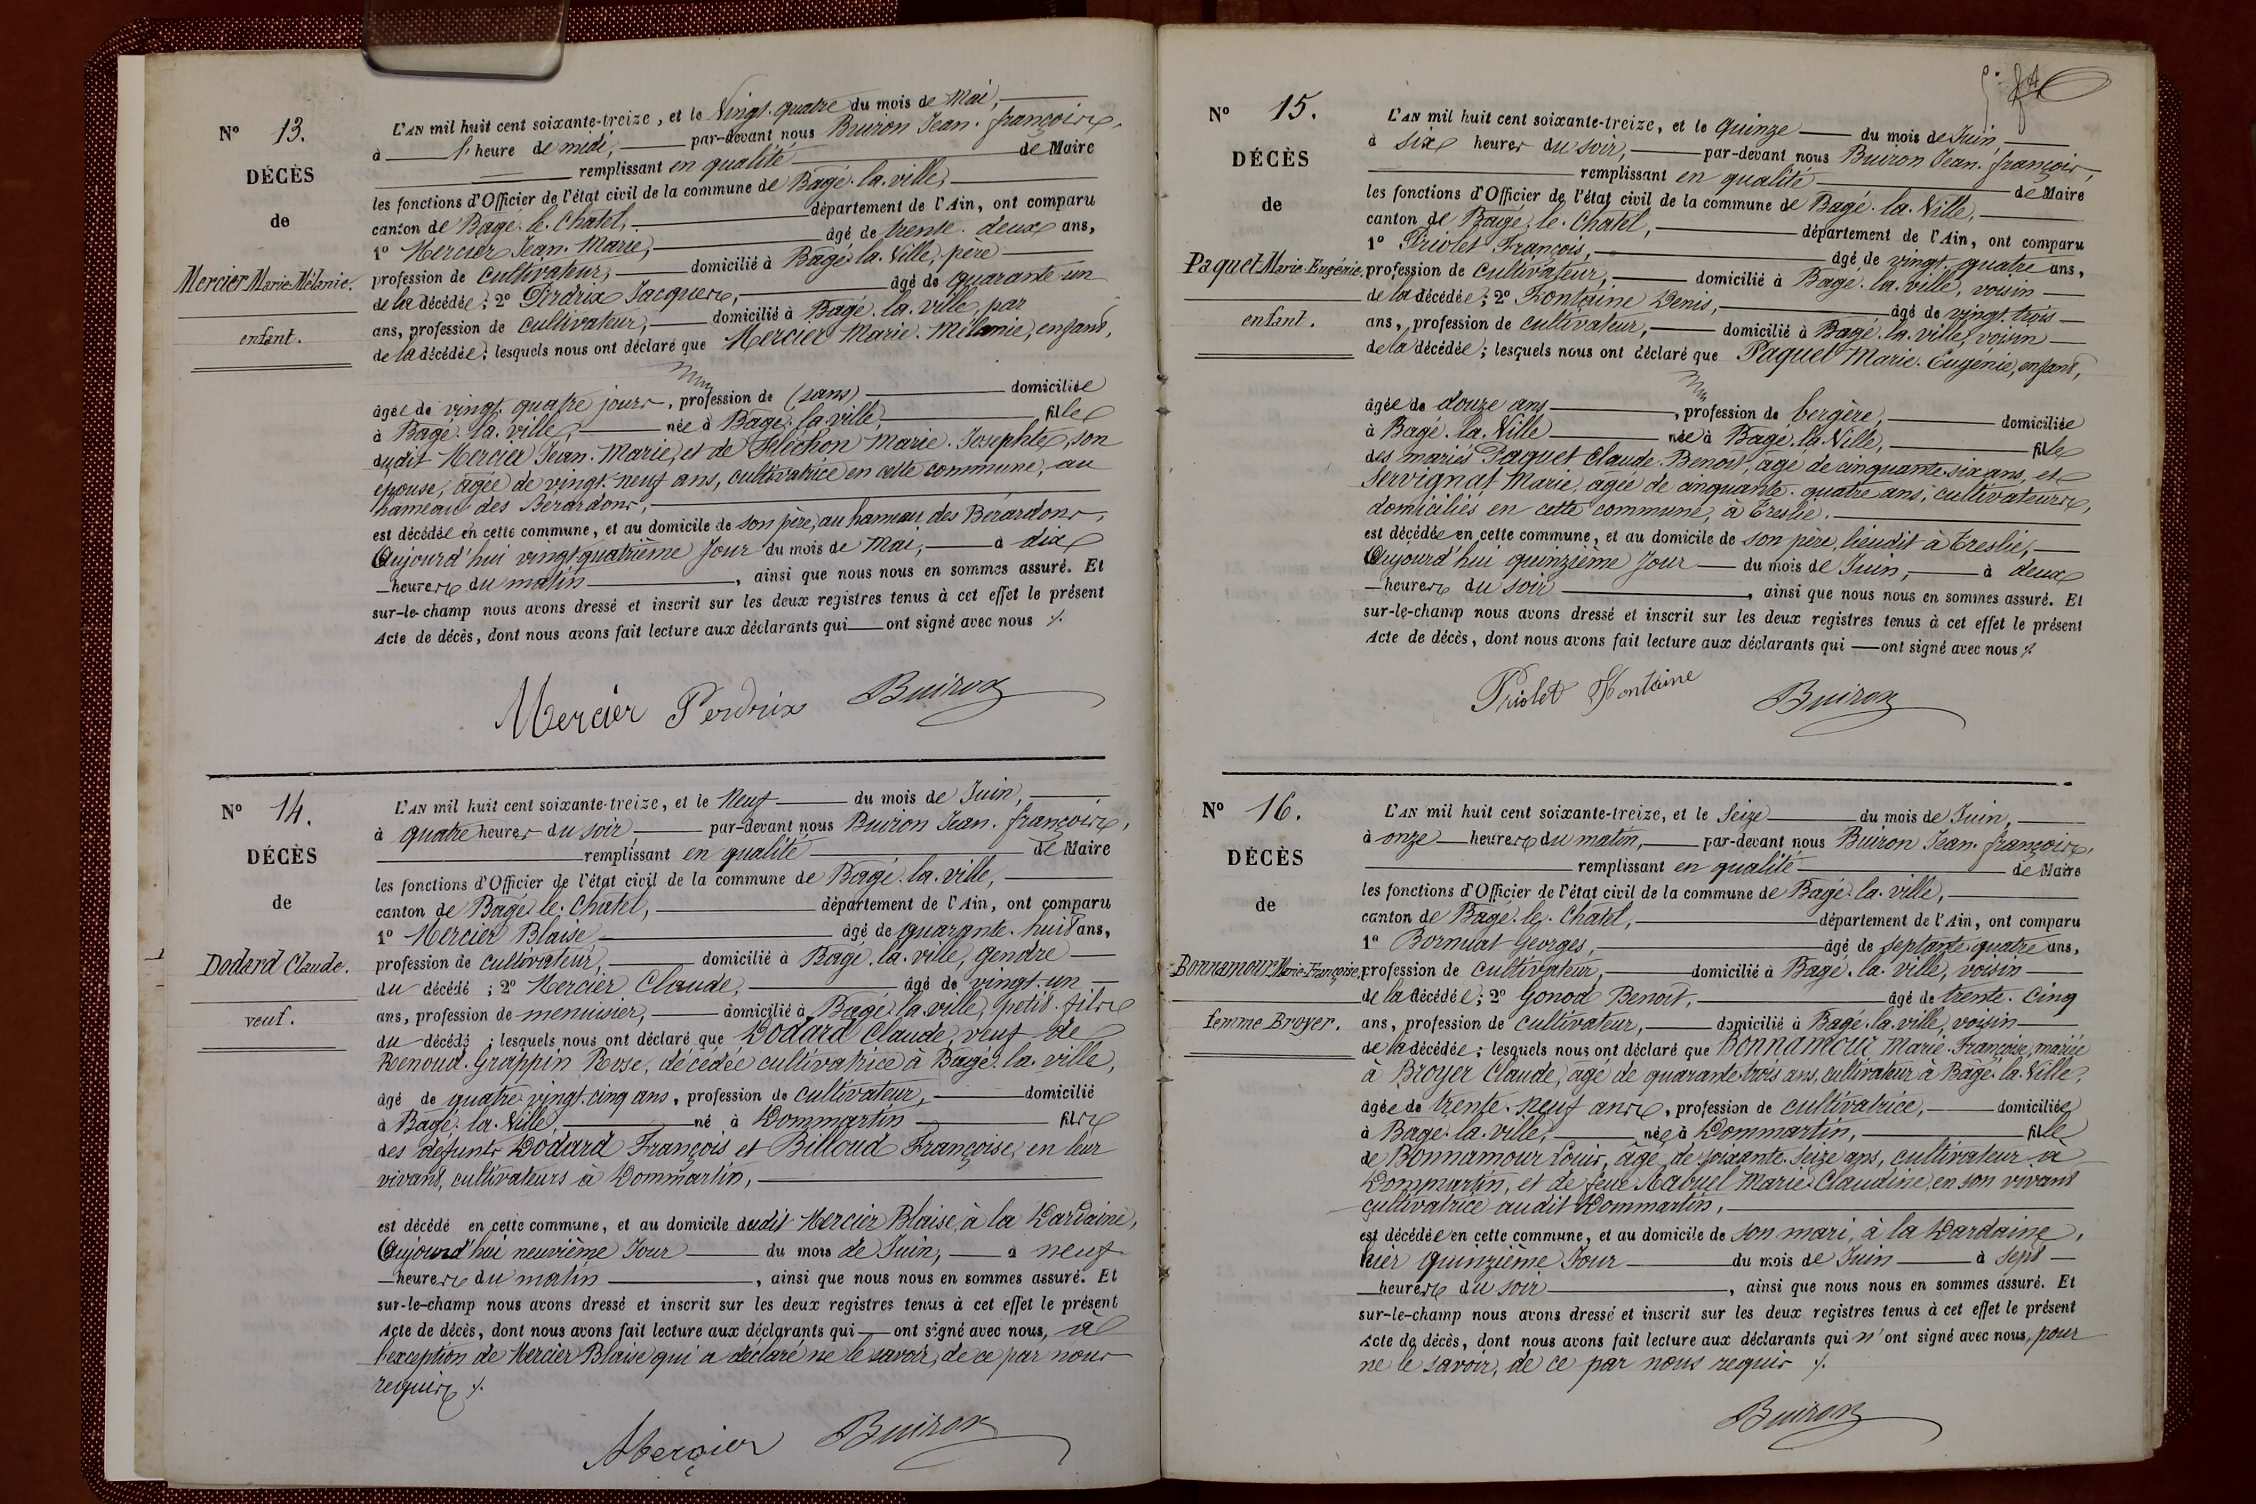 N° 13.
DÉCÈS
de
Mercier Marie Mélanie.
enfant.
L'AN mil huit cent soixante-treize, et le Vingt-quatre du mois de Mai,
à l'heure de midi, par-devant nous Buiron Jean-françois,
remplissant en qualité de Maire
les fonctions d'Officier de l'état civil de la commune de Bagé-la-ville,
canton de Bagé-le-Chatel, département de l'Ain, ont comparu
1° Mercier Jean-Marie, âgé de trente-deux ans,
profession de cultivateur, domicilié à Bagé-la-Ville, père
de la décédée; 2° Perdrix Jacques, âgé de quarante un
ans, profession de cultivateur, domicilié à Bagé-la-ville, par
de la décédée; lesquels nous ont déclaré que Mercier Marie-Mélanie, enfant,
âgée de vingt-quatre jours, profession de (sans) domiciliée
à Bagé-la-ville, née à Bagé-la-ville, fille
dudit Mercier Jean-Marie, et de Marie-Josephte, son
épouse, âgée de vingt-neuf ans, cultivatrice en cette commune, au
hameau des Bérardons,
est décédée en cette commune, et au domicile de son père, au hameau des Bérardons,
Aujourd'hui vingt-quatrième Jour du mois de Mai, à dix
heures du matin, ainsi que nous nous en sommes assuré. Et
sur-le-champ nous avons dressé et inscrit sur les deux registres tenus à cet effet le présent
Acte de décès, dont nous avons fait lecture aux déclarants qui ont signé avec nous
Mercier Perdrix Buiron
N° 14.
DÉCÈS
de
Dodard Claude.
veuf.
L'AN mil huit cent soixante-treize, et le Neuf du mois de Juin,
à quatre heures du soir par-devant nous Buiron Jean-françois,
remplissant en qualité de Maire
les fonctions d'Officier de l'état civil de la commune de Bagé-la-ville,
canton de Bagé-le-Chatel, département de l'Ain, ont comparu
1° Mercier Blaise, âgé de quarante-huit ans,
profession de cultivateur, domicilié à Bagé-la-ville, gendre
du décédé; 2° Mercier Claude, âgé de vingt-un
ans, profession de menuisier, domicilié à Bagé-la-ville, petit-fils
du décédé; lesquels nous ont déclaré que Dodard Claude, veuf de
Renoud-Grappin Rose, décédée cultivatrice à Bagé-la-ville,
âgé de quatre-vingt-cinq ans, profession de cultivateur, domicilié
à Bagé-la-Ville, né à Dommartin fils
des défunts Dodard François et Billoud Françoise, en leur
vivant, cultivateurs à Dommartin,
est décédé en cette commune, et au domicile dudit Mercier Blaise, à la Dardaine,
Aujourd'hui neuvième Jour du mois de Juin, à neuf
heures du matin, ainsi que nous nous en sommes assuré. Et
sur-le-champ nous avons dressé et inscrit sur les deux registres tenus à cet effet le présent
Acte de décès, dont nous avons fait lecture aux déclarants qui ont signé avec nous, à
l'exception de Mercier Blaise qui a déclaré ne le savoir, de ce par nous
requis
Mercier Buiron
N° 15.
DÉCÈS
de
Paquet Marie-Eugénie.
enfant.
L'AN mil huit cent soixante-treize, et le Quinze du mois de Juin,
à six heures du soir, par-devant nous Buiron Jean-françois,
remplissant en qualité de Maire
les fonctions d'Officier de l'état civil de la commune de Bagé-la-Ville,
canton de Bagé-le-Chatel, département de l'Ain, ont comparu
1° Priolet François, âgé de vingt-quatre ans,
profession de cultivateur, domicilié à Bagé-la-ville, voisin
de la décédée; 2° Fontaine Denis, âgé de vingt-trois
ans, profession de cultivateur, domicilié à Bagé-la-ville, voisin
de la décédée; lesquels nous ont déclaré que Paquet Marie-Eugénie, enfant,
âgée de douze ans, profession de bergère, domiciliée
à Bagé-la-Ville née à Bagé-la-Ville, fille
des mariés Paquet Claude-Benoit, âgé de cinquante-six ans, et
Servignat Marie, agée de cinquante-quatre ans, cultivateurs,
domiciliés en cette commune, à Treslie.
est décédée en cette commune, et au domicile de son père, lieudit à Treslie,
Aujourd'hui quinzième Jour du mois de Juin, à deux
heures du soir, ainsi que nous nous en sommes assuré. Et
sur-le-champ nous avons dressé et inscrit sur les deux registres tenus à cet effet le présent
Acte de décès, dont nous avons fait lecture aux déclarants qui ont signé avec nous
Priolet Fontaine Buiron
N° 16.
DÉCÈS
de
Bonnamour Marie-Françoise,
femme Broyer.
L'AN mil huit cent soixante-treize, et le Seize du mois de Juin,
à onze heures du matin, par-devant nous Buiron Jean-françois,
remplissant en qualité de Maire
les fonctions d'Officier de l'état civil de la commune de Bagé-la-ville,
canton de Bagé-le-Chatel, département de l'Ain, ont comparu
1° Bornuat Georges, âgé de septante-quatre ans,
profession de cultivateur, domicilié à Bagé-la-ville, voisin
de la décédée; 2° Gonod Benoit, âgé de trente-cinq
ans, profession de cultivateur, domicilié à Bagé-la-ville, voisin
de la décédée; lesquels nous ont déclaré que Bonnamour Marie-Françoise, mariée
à Broyer Claude, âgé de quarante trois ans, cultivateur à Bagé-la-Ville,
âgée de trente-neuf ans, profession de cultivatrice, domiciliée
à Bagé-la-ville, née à Dommartin, fille
de Bonnamour Louis, âgé de soixante-seize ans, cultivateur à
Dommartin, et de feue Marie-Claudine, en son vivant
cultivatrice audit Dommartin,
est décédée en cette commune, et au domicile de son mari, à la Dardaine,
hier quinzième Jour du mois de Juin à sept
heures du soir, ainsi que nous nous en sommes assuré. Et
sur-le-champ nous avons dressé et inscrit sur les deux registres tenus à cet effet le présent
Acte de décès, dont nous avons fait lecture aux déclarants qui n'ont signé avec nous, pour
ne le savoir, de ce par nous requis
Buiron